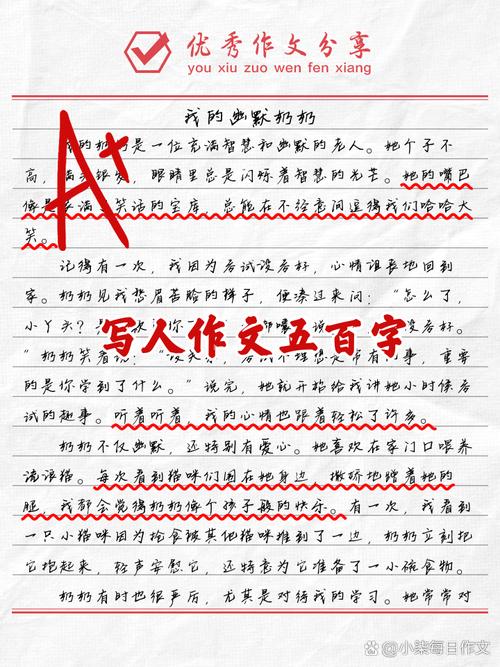 优秀作文分享
you xiu zuo wen fen xiang
我的幽默奶奶
A+
的奶奶是一位充满智慧和幽默的老人。她个子不
高，满头银发，眼睛里总是闪烁着智慧的光芒。她的嘴巴
像是装满了笑话的宝库，总能在不经意间逗得我们哈哈大
笑。
记得有一次，我因为考试没考好，心情沮丧地回到
家。奶奶见我愁眉苦脸的样子，便凑过来问：“怎么了，
小丫头？
说
没考好。
写人作文五百字
”奶奶笑着说：“
常有的事，重要
的是你学到了什么。”说完，她就开始给我讲她小时候考
试的趣事。听着听着，我的心情也跟着轻松了许多。
奶奶不仅幽默，还特别有爱心。她喜欢在家门口喂养
流浪猫。每次看到猫咪们围在她身边，撒娇地蹭着她的
腿，我都会觉得奶奶像个孩子般的快乐。有一次，我看到
一只小猫咪因为抢食被其他猫咪推到了一边，奶奶立刻把
它抱起来，轻声安慰它，还特意为它准备了一小碗食物。
奶奶有时也很严厉，尤其是对待我的学习。她常常对
小柒每日作文